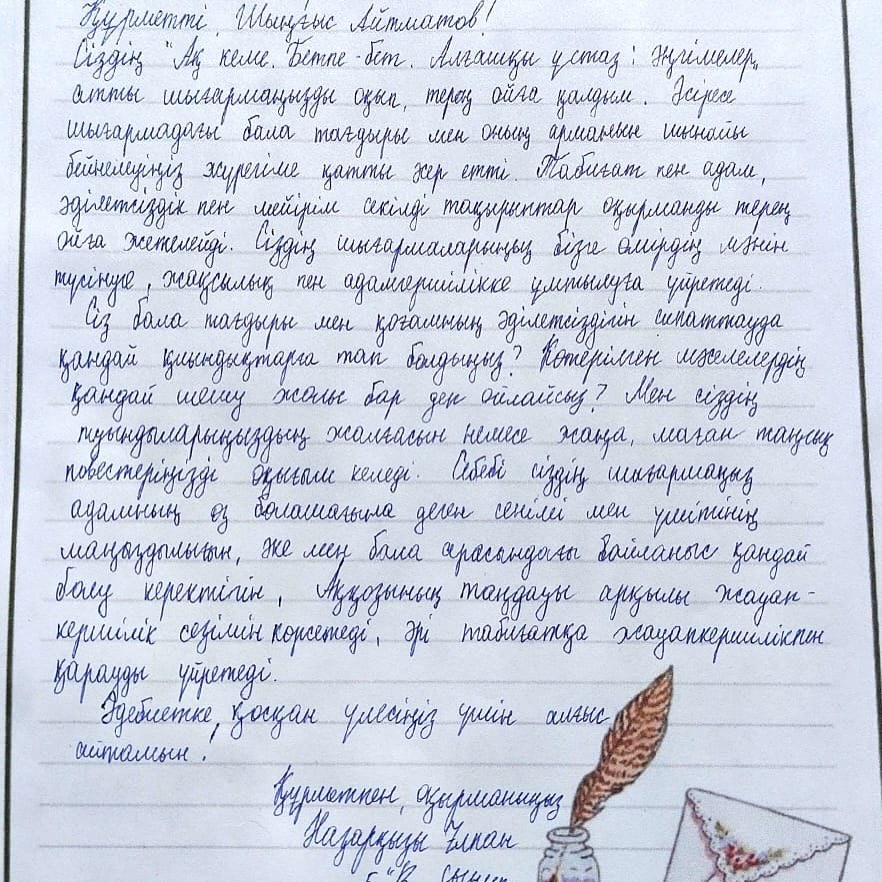 Құрметті, Шыңғыс Айтматов!
Сіздің "Ақ кеме. Бетпе-бет. Алғашқы ұстаз: әңгімелер"
атты шығармаңызды оқып, терең ойға қалдым. Әсіресе
шығармадағы бала тағдыры мен оның арманын шынайы
бейнелеуіңіз жүрегіме қатты әсер етті. Табиғат пен адам,
әділетсіздік пен мейірім секілді тақырыптар оқырманды терең
ойға жетелейді. Сіздің шығармаларыңыз бізге өмірдің мәнін
түсінуге, жақсылық пен адамгершілікке ұмтылуға үйретеді.
Сіз бала тағдыры мен қоғамның әділетсіздігін сипаттауда
қандай қиындықтарға тап болдыңыз? Көтерілген мәселелердің
қандай шешу жолы бар деп ойлайсыз? Мен сіздің
туындыларыңыздың жалғасын немесе жаңа, маған таңсық
повестеріңізді оқығым келеді. Себебі сіздің шығармаңыз
адамның өз болашағына деген сенімі мен үмітінің
маңыздылығын, әке мен бала арасындағы байланыс қандай
болу керектігін, Аққозының таңдауы арқылы жауап-
кершілік сезімін көрсетеді, әрі табиғатқа жауапкершілікпен
қарауды үйретеді.
Әдебиетке, қосқан үлесіңіз үшін алғыс
айтамын!
Құрметпен, оқырманыңыз
Назарқызы Ұлпан
"В" сынып